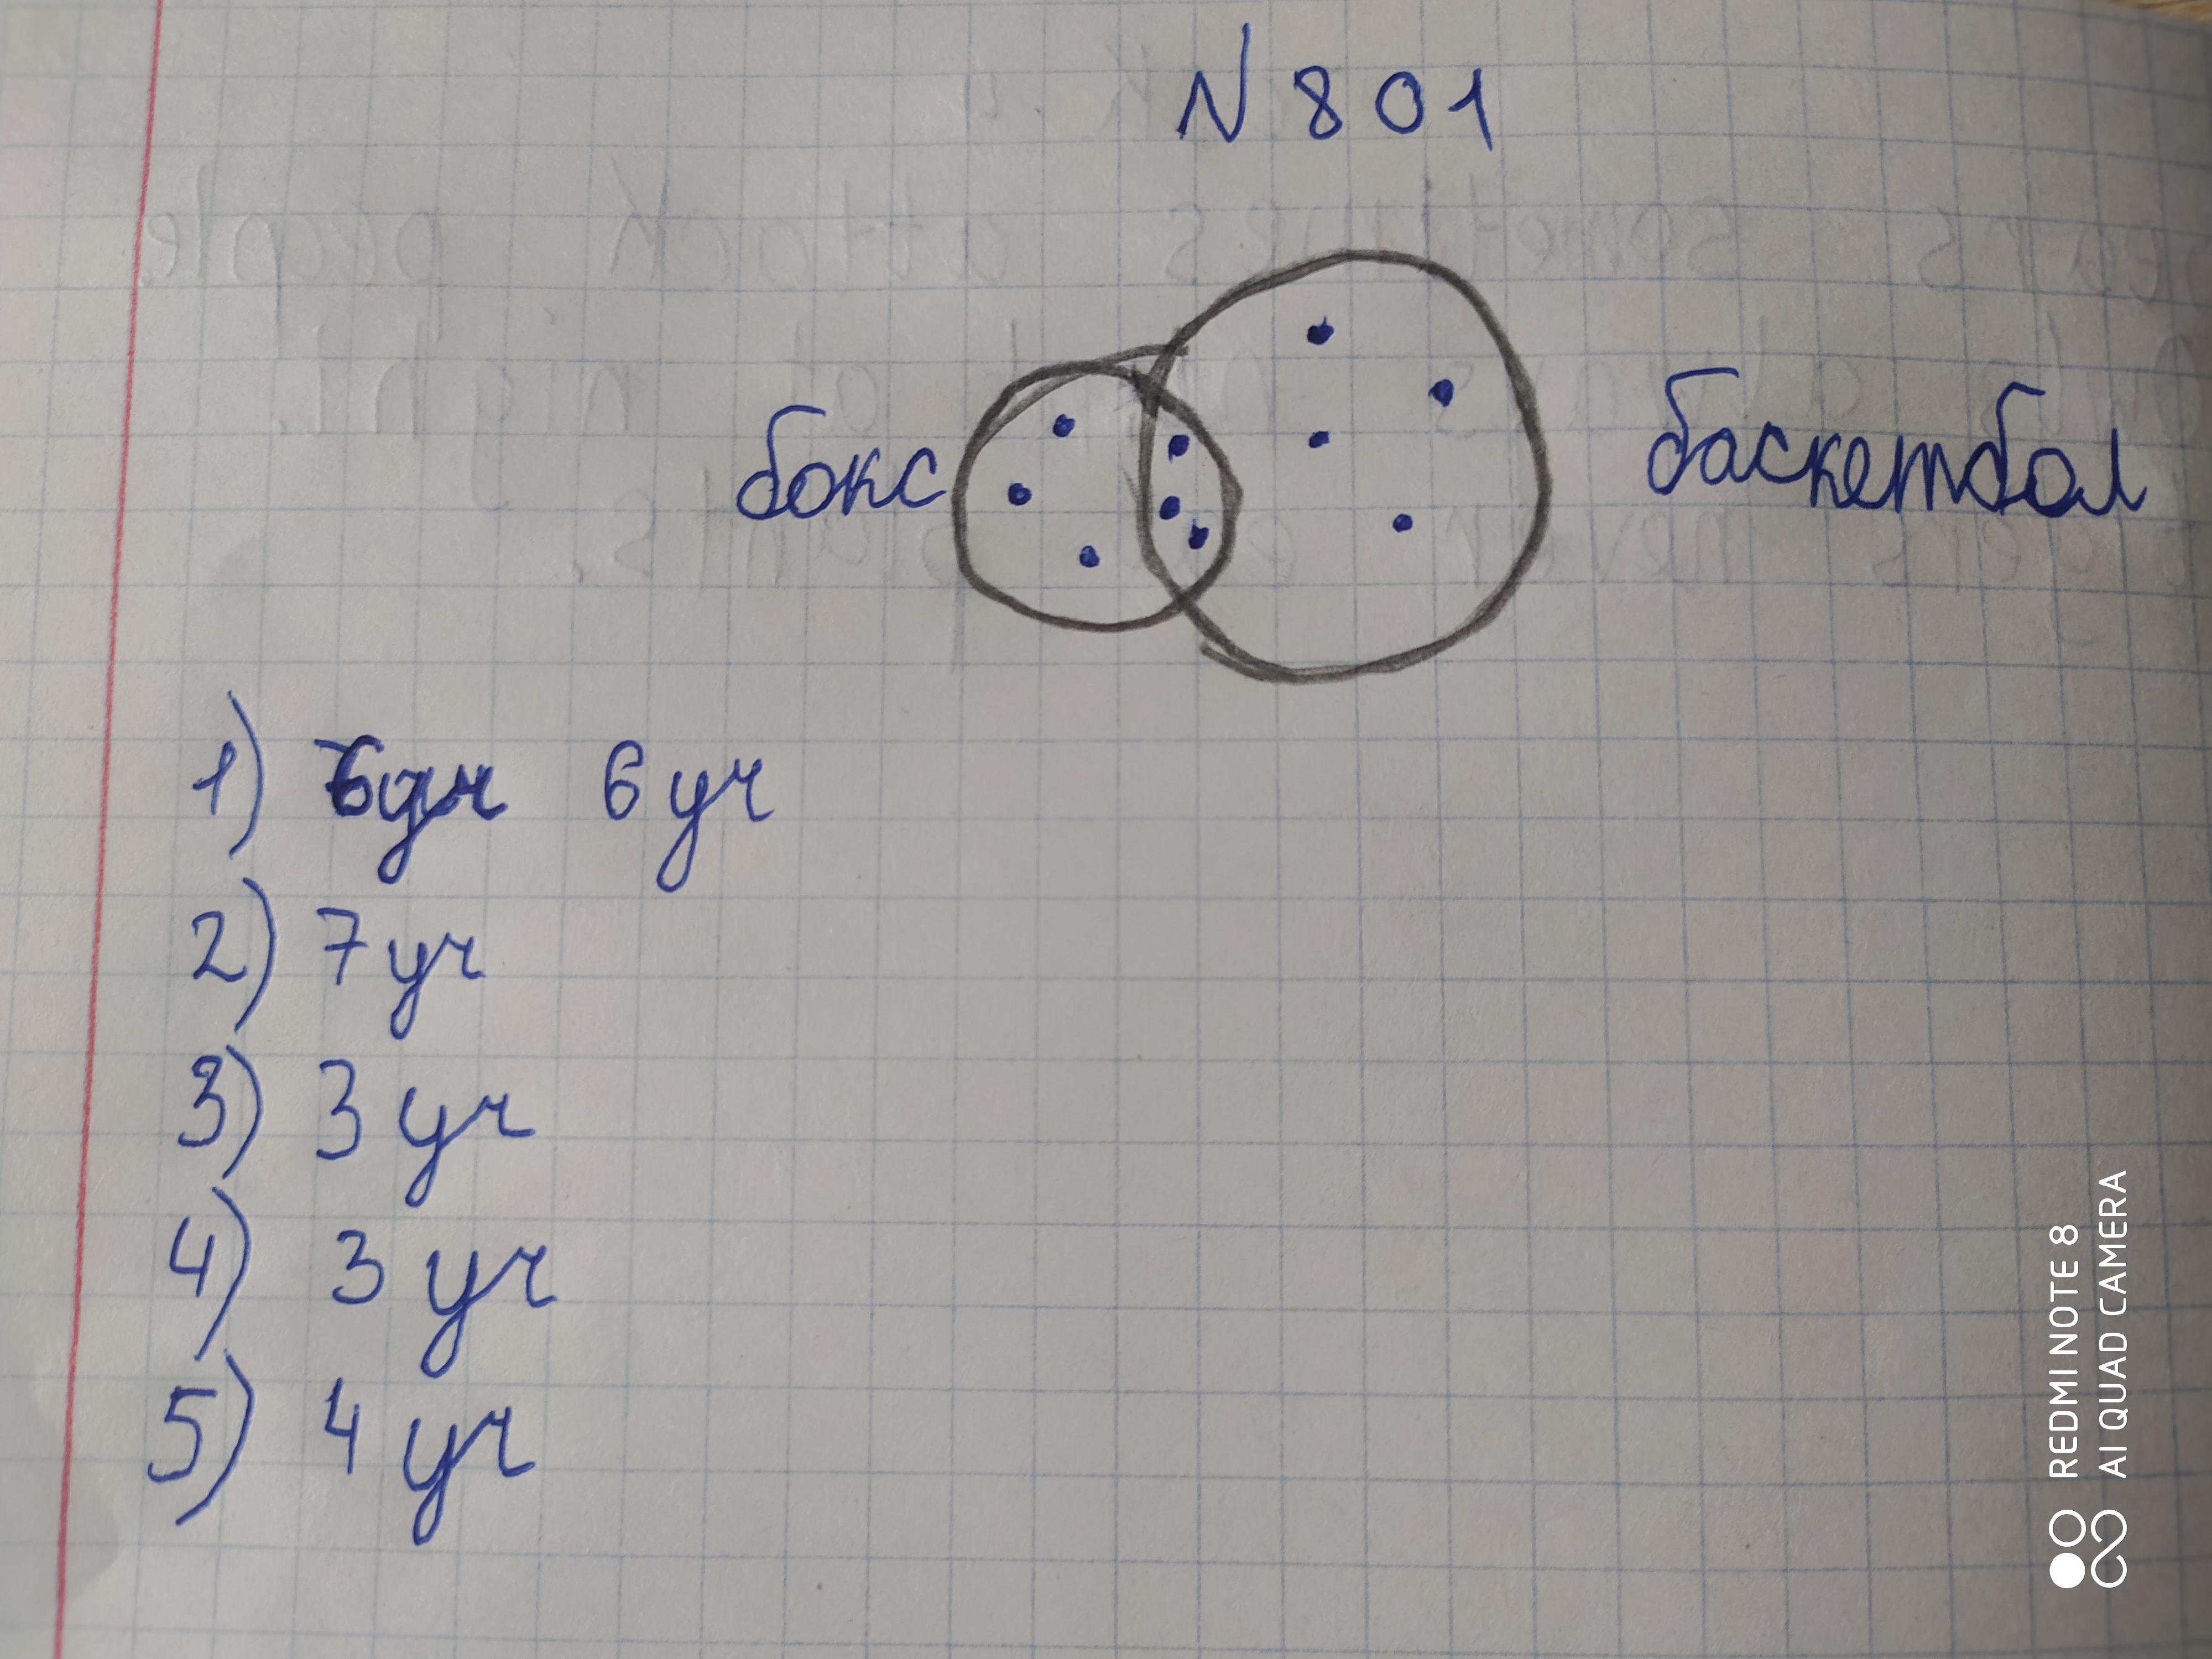 N 801
бокс
баскетбол
1) 6 уч
2) 7 уч
3) 3 уч
4) 3 уч
5) 4 уч
REDMI NOTE 8
AI QUAD CAMERA